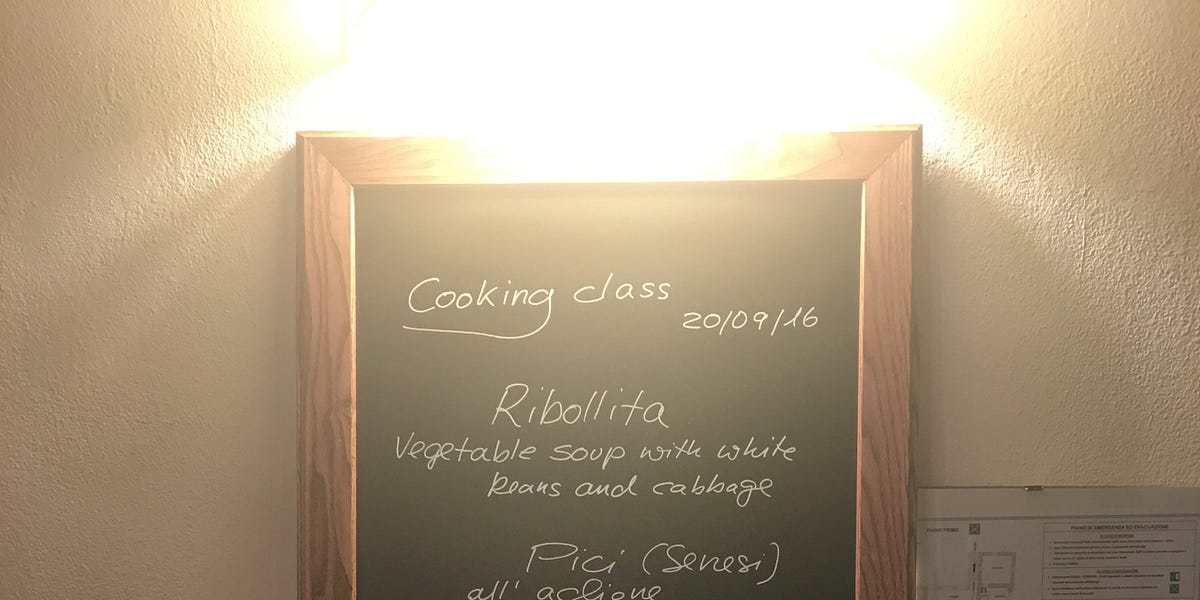 Cooking class
20/09/16
Ribollita
Vegetable soup with white
beans and cabbage
Pici (Senesi)
all' aglione
PIANO PRIMO
PIANO DI EMERGENZA ED EVACUAZIONE